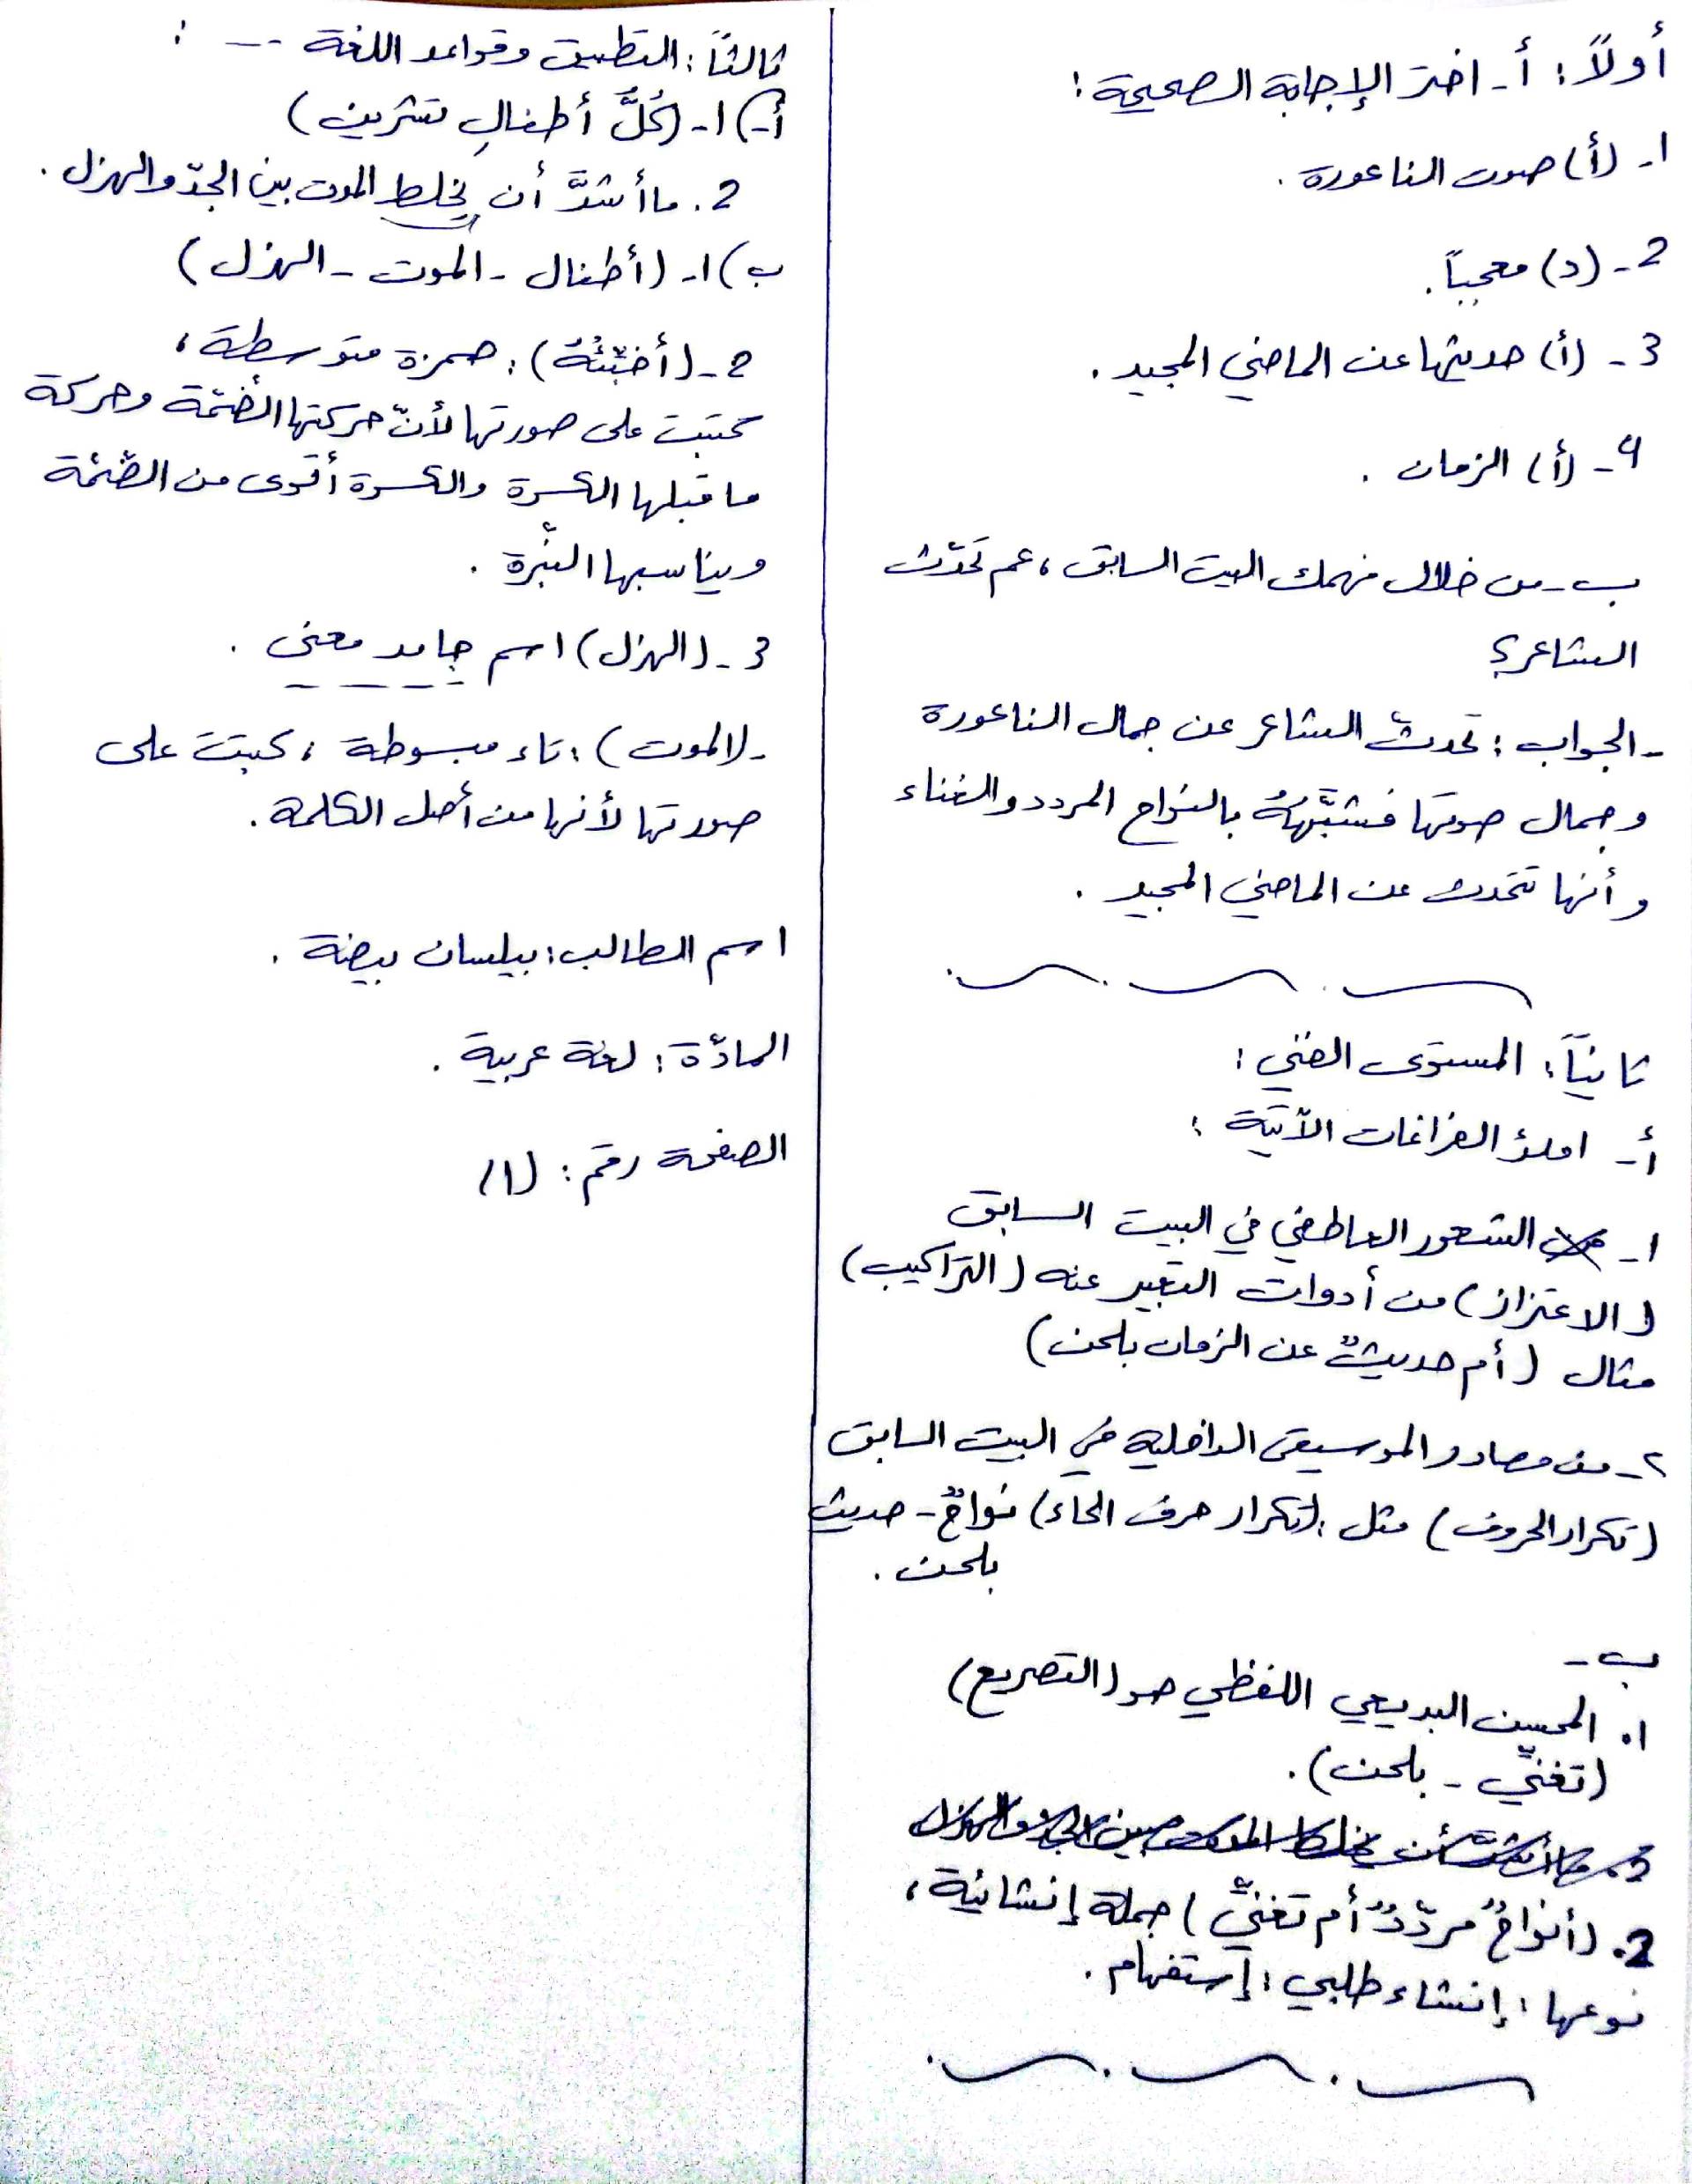 أولاً: أ- اختر الإجابة الصحيحة:
١- (أ) صوت الناعورة.
2- (د) معجباً.
3- (أ) حديثها عن الماضي المجيد.
4- (أ) الزمان.
ب- من خلال فهمك البيت السابق، عم تحدّث
الشاعر؟
- الجواب: تحدث الشاعر عن جمال الناعورة
وجمال صوتها فشبَّههُ بالنواح المردد والغناء
وأنها تتحدث عن الماضي المجيد.
ثانياً: المستوى الفني:
أ- املؤ الفراغات الآتية:
١- الشعور العاطفي في البيت السابق
(الاعتزاز) من أدوات التعبير عنه (التراكيب)
مثال (أم حديثٌ عن الزمان بلحن)
٢- من مصادر الموسيقى الداخلية في البيت السابق
(تكرار الحروف) مثل: (تكرار حرف الحاء) نواحٌ - حديث
بلحن.
ب-
١. المحسن البديعي اللفظي هو (التصريع)
(تغنّي - بلحن).
3. ما أشدَّ أن يخلط الموت بين الجد والهزل
2. (أنواحٌ مردّدٌ أم تغنّي) جملة إنشائية،
نوعها: إنشاء طلبي: إستفهام.
ثالثاً: التطبيق وقواعد اللغة --- :
أ-) ١- (كُلَّ أطفالِ تشرين)
2. ما أشدَّ أن يخلط الموت بين الجدّ والهزل.
ب) ١- (أطفال - الموت - الهزل)
2- (أخبّئُهُ): همزة متوسطة،
كتبت على صورتها لأنّ حركتها الضّمّة وحركة
ما قبلها الكسرة والكسرة أقوى من الضّمّة
ويناسبها النّبرة.
3- (الهزل) اسم جامد معنى.
- (الموت): تاء مبسوطة، كتبت على
صورتها لأنها من أصل الكلمة.
اسم الطالب: بيلسان بيضة.
المادّة: لغة عربية.
الصفحة رقم: (١)